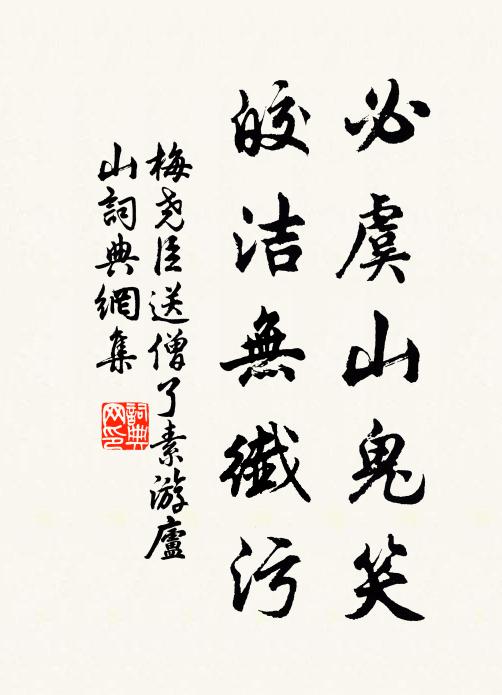 必虞山鬼笑
皎洁無纖污
梅尧臣送僧了素游廬
山詞典網集
詞典网印